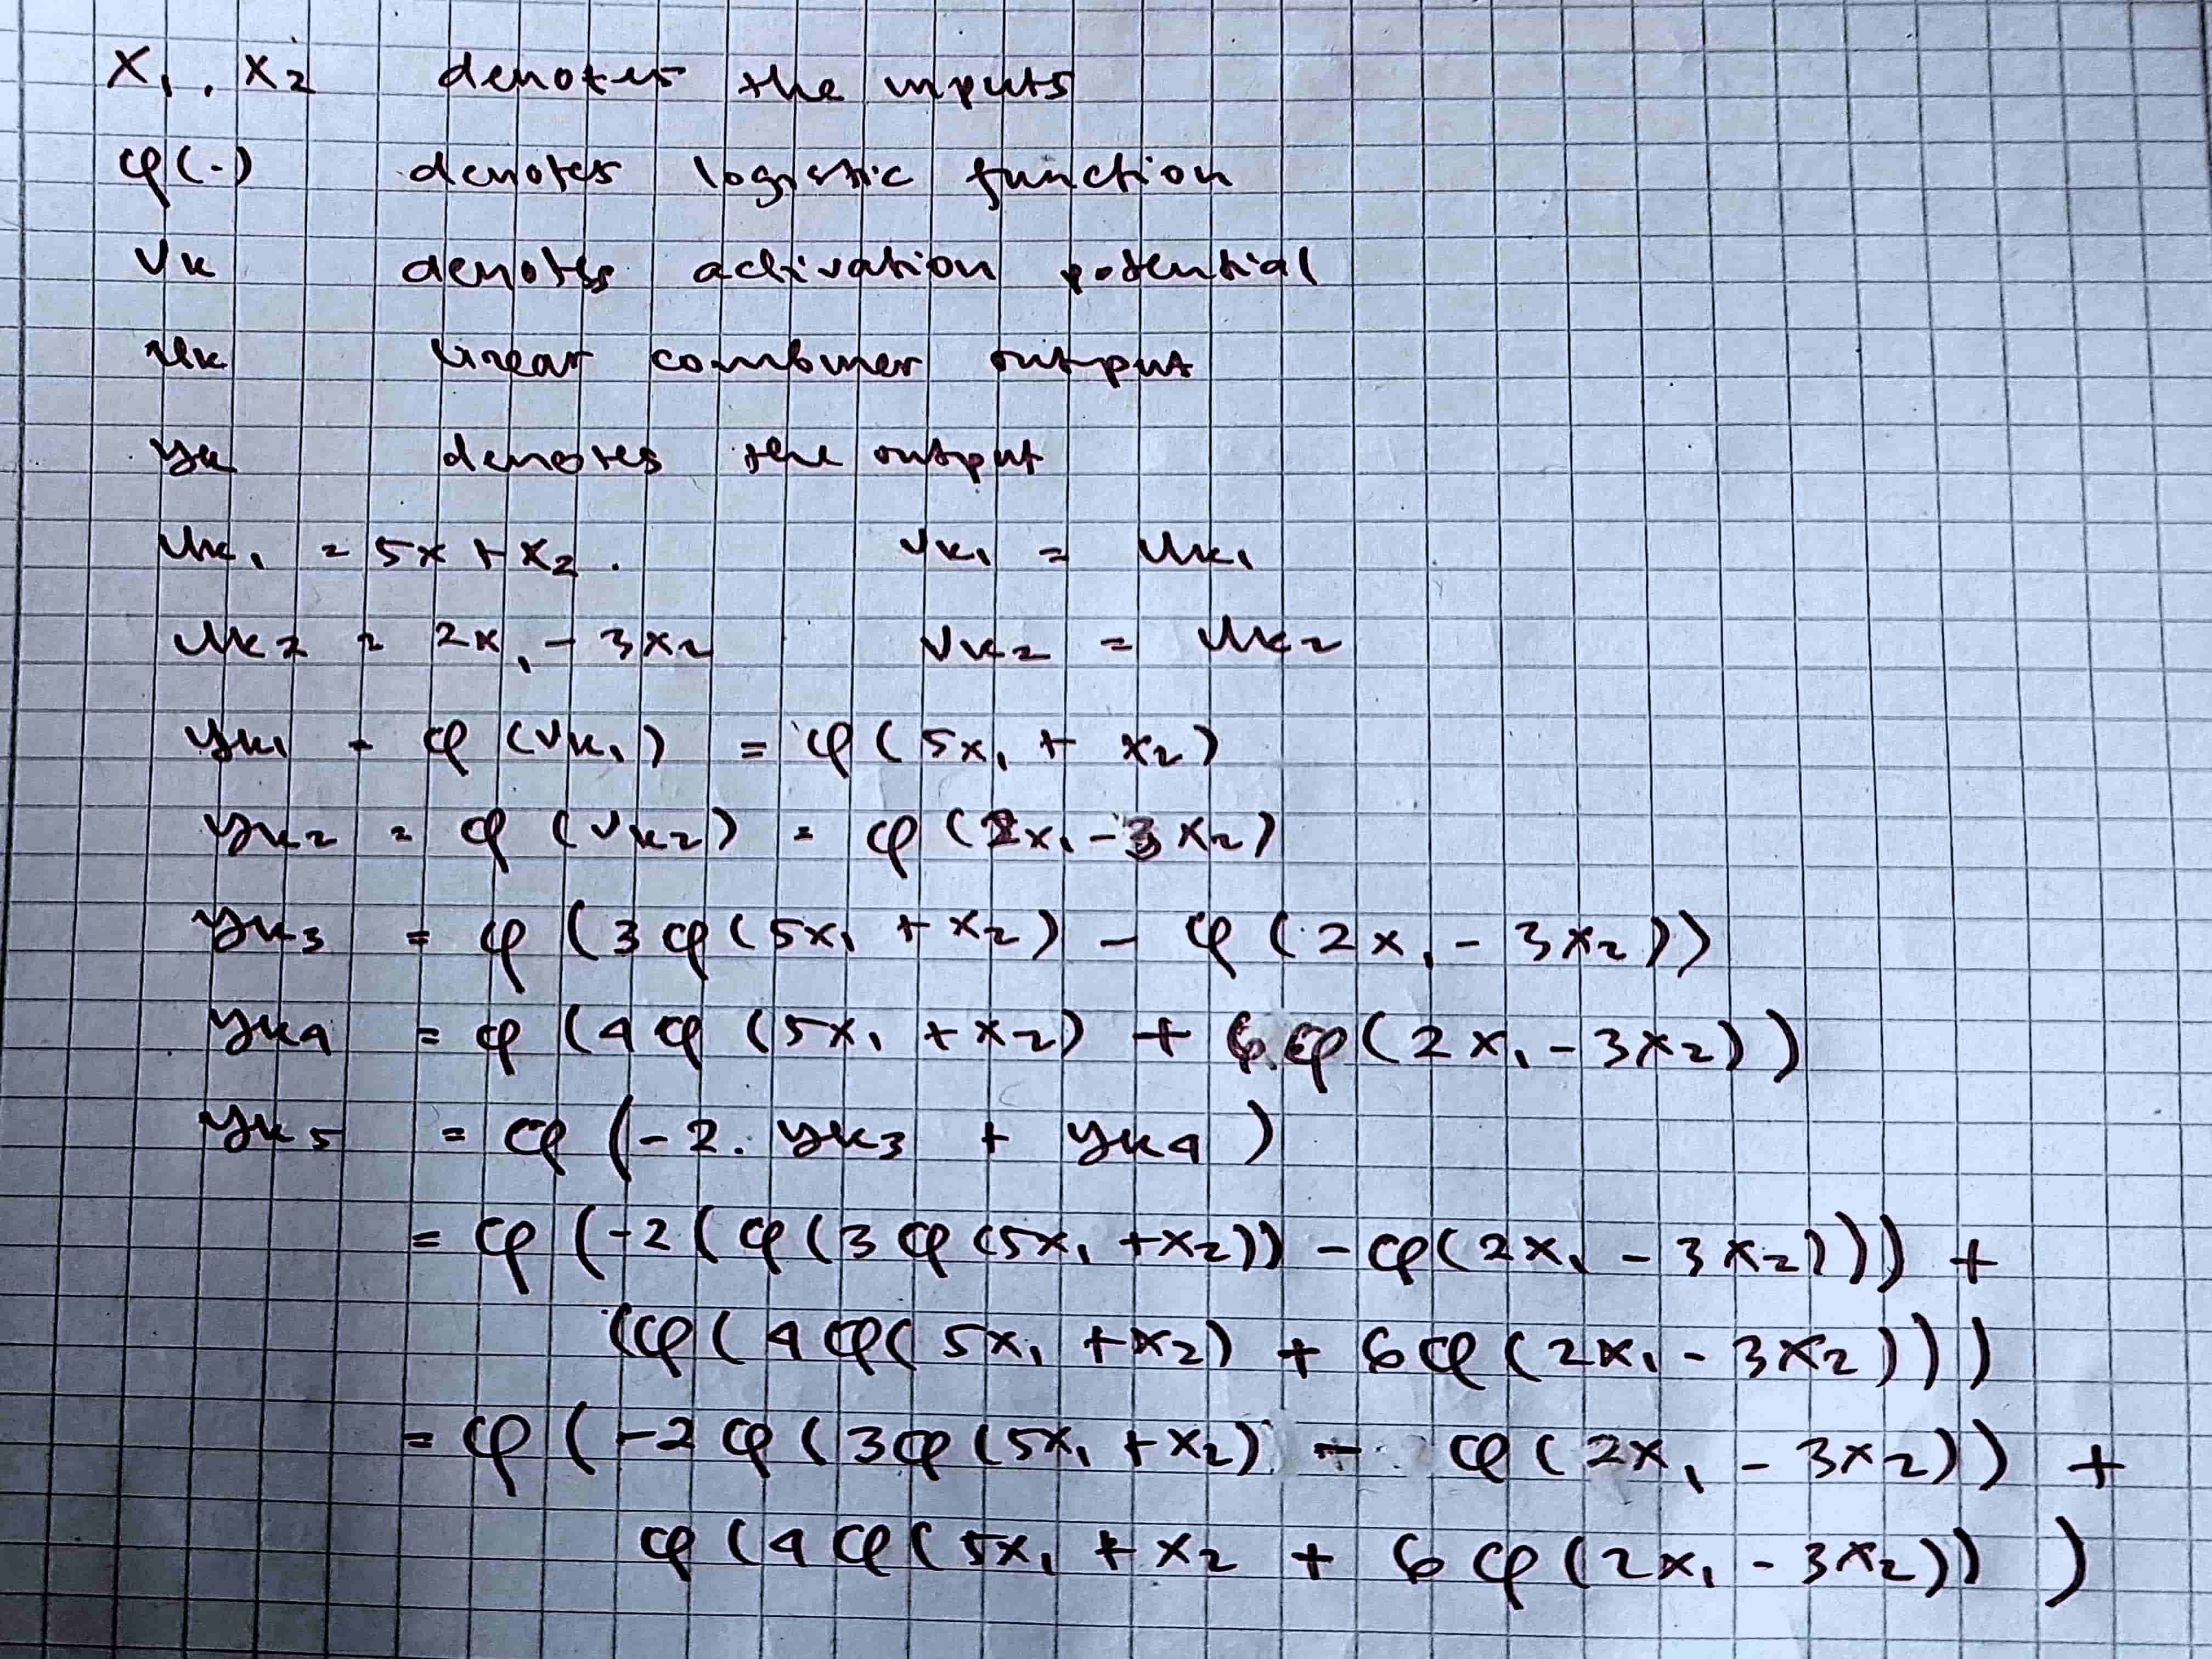 x₁, x₂ denotes the inputs
φ(·) denotes logistic function
vk denotes activation potential
uk linear combiner output
yk denotes the output
uk₁ = 5x + x₂. vk₁ = uk₁
uk₂ = 2x₁ - 3x₂ vk₂ = uk₂
yk₁ = φ(vk₁) = φ(5x₁ + x₂)
yk₂ = φ(vk₂) = φ(2x₁ - 3x₂)
yk₃ = φ(3φ(5x₁ + x₂) - φ(2x₁ - 3x₂))
yk₄ = φ(4φ(5x₁ + x₂) + 6φ(2x₁ - 3x₂))
yk₅ = φ(-2. yk₃ + yk₄)
= φ(-2(φ(3φ(5x₁ + x₂)) - φ(2x₁ - 3x₂))) +
(φ(4φ(5x₁ + x₂) + 6φ(2x₁ - 3x₂)))
= φ(-2φ(3φ(5x₁ + x₂) - φ(2x₁ - 3x₂)) +
φ(4φ(5x₁ + x₂ + 6φ(2x₁ - 3x₂)) )